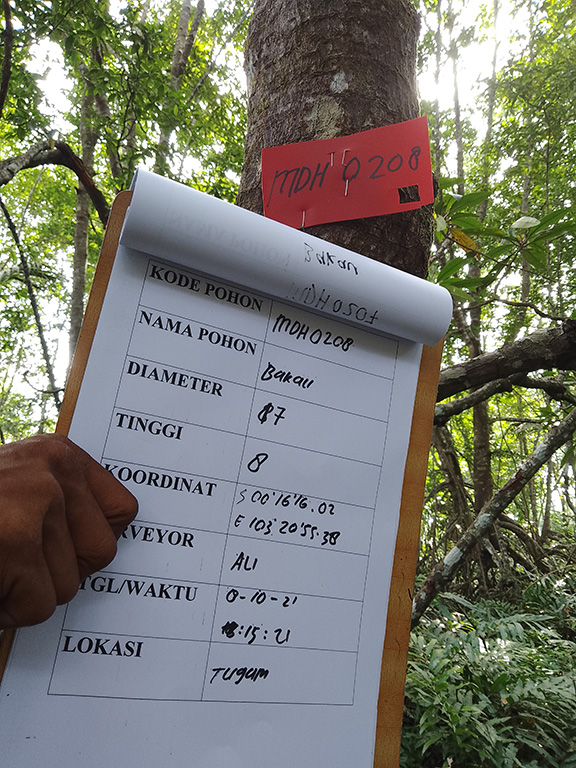 MDH 0208
Bakau
MDH0207
KODE POHON MDH0208
NAMA POHON Bakau
DIAMETER 87
TINGGI 8
KOORDINAT S 00°16'16.02
E 103°20'55.38
RVEYOR ALI
TGL/WAKTU 0-10-21
:15:21
LOKASI Tugum